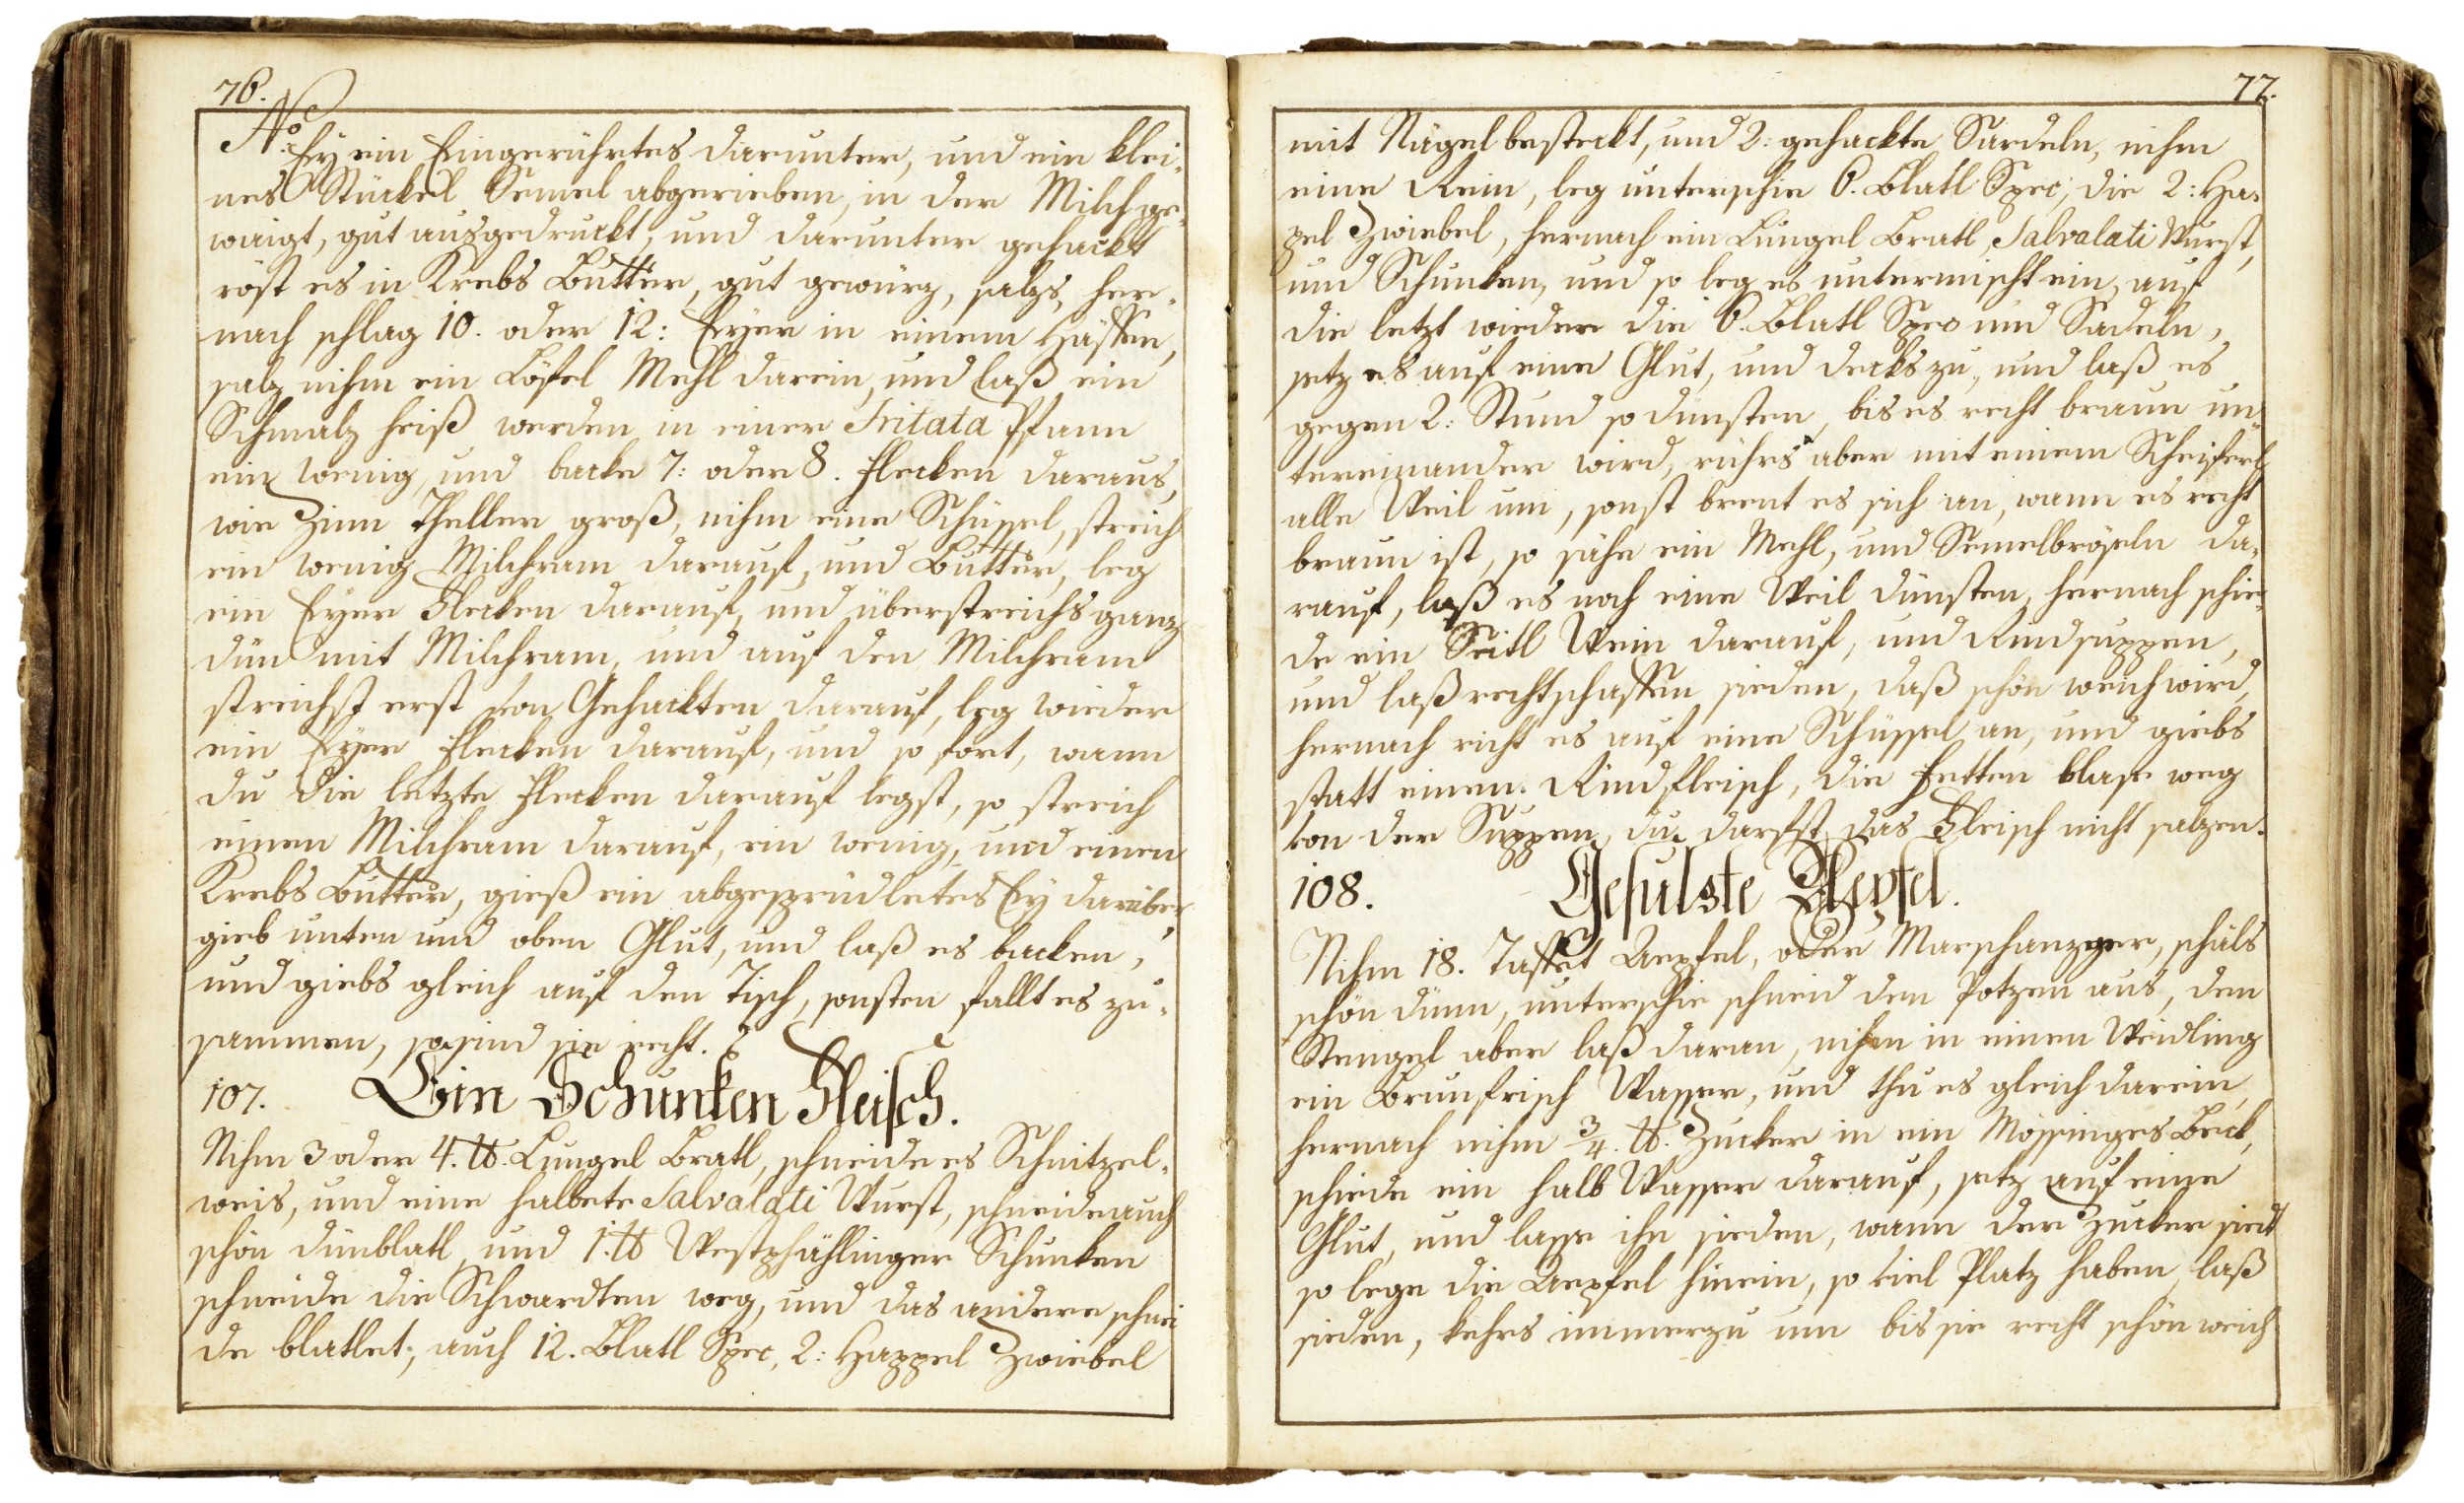 76.
No
Ey ein Eingerührtes darunter, und ein klei-
nes Stückel Semel abgerieben, in der Milch ge-
waigt, gut ausgedruckt, und darunter gehackt
röst es in Krebs Butter, gut gewürz, salzs, her-
nach schlag 10. oder 12: Eyer in einem Häffen,
salz nihm ein Löffel Mehl darein, und laß ein
Schmalz heiß werden in einer Fritata Pfann
ein wenig, und backe 7: oder 8. Flecken daraus,
wie Zinn Theller groß, nihm eine Schüssel, streich
ein wenig Milchram darauf, und Butter, leg
ein Eyer Flecken darauf, und überstreichs ganz
dün mit Milchram, und auf den Milchram
streichst erst von Gehackten darauf, leg wieder
ein Eyer Flecken darauf, und so fort, wann
du die letzte Flecken darauf legst, so streich
einen Milchram darauf, ein wenig, und einen
Krebs Butter, gieß ein abgesprudletes Ey darüber
gieb unten und oben Glut, und laß es backen,
und giebs gleich auf den Tisch, sonsten fallt es zu-
sammen, so sind sie recht.
107. Ein Schunken Fleisch.
Nihm 3 oder 4. ℔. Lungel Bratl, schneide es Schnitzel-
weis, und eine halbete Salvalati Wurst, schneide auch
schön dünblatl, und 1. ℔ Westphählinger Schunken
schneide die Schwardten weg, und das andere schnei
de blatlet, auch 12. Blatl Spec, 2: Happel Zwiebel
77.
mit Nägel besteckt, und 2: gehackte Sardeln, nihm
eine Rein, leg unterschie 6. Blatl Spec, die 2: Hap-
pel Zwiebel, hernach ein Lungel Bratl, Salvalati Wurst,
und Schunken, und so leg es untermischt ein, auf
die letzt wieder die 6. Blatl Spec und Sadeln,
setz es auf eine Glut, und decks zu, und laß es
gegen 2: Stund so dünsten, bis es recht braun un-
tereinander wird, rührs aber mit einem Scheiferl
alle Weil um, sonst brent es sich an, wann es recht
braun ist, so sähe ein Mehl, und Semelbröseln da-
rauf, laß es noch eine Weil dünsten, hernach schie-
de ein Seitl Wein darauf, und Rindsuppen,
und laß rechtschaffen sieden, daß schön weich wird,
hernach richt es auf eine Schüssel an, und giebs
statt einem Rindfleisch, die Fetten blase weg
von der Suppen, du darfst das Fleisch nicht salzen.
108. Gesulste Aepfel.
Nihm 18. Taffet Aepfel, oder Marschanzger, schäls
schön dünn, unterschie schneid den Potzen aus, den
Stengel aber laß daran, nihm in einen Weidling
ein Brunfrisch Wasser, und thu es gleich darein,
hernach nihm 3/4. ℔. Zucker in ein Mössinges Beck,
schiede ein halb Wasser darauf, setz auf eine
Glut, und lasse ihn sieden, wann der Zucker siedt
so lege die Aepfel hinein, so viel Platz haben, laß
sieden, kehrs immerzu um bis sie recht schön weich